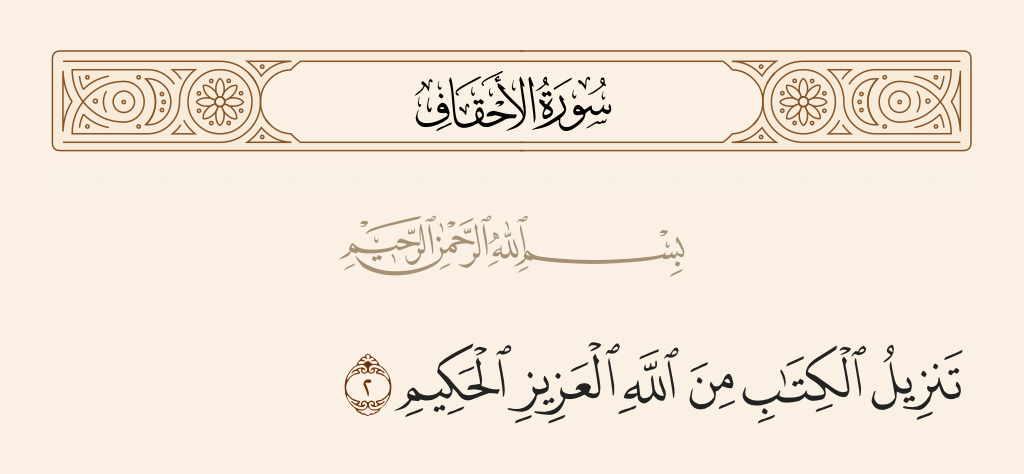 سُورَةُ الأَحْقَافِ
بِسْمِ ٱللَّهِ ٱلرَّحْمَٰنِ ٱلرَّحِيمِ
تَنزِيلُ ٱلْكِتَـٰبِ مِنَ ٱللَّهِ ٱلْعَزِيزِ ٱلْحَكِيمِ ٢